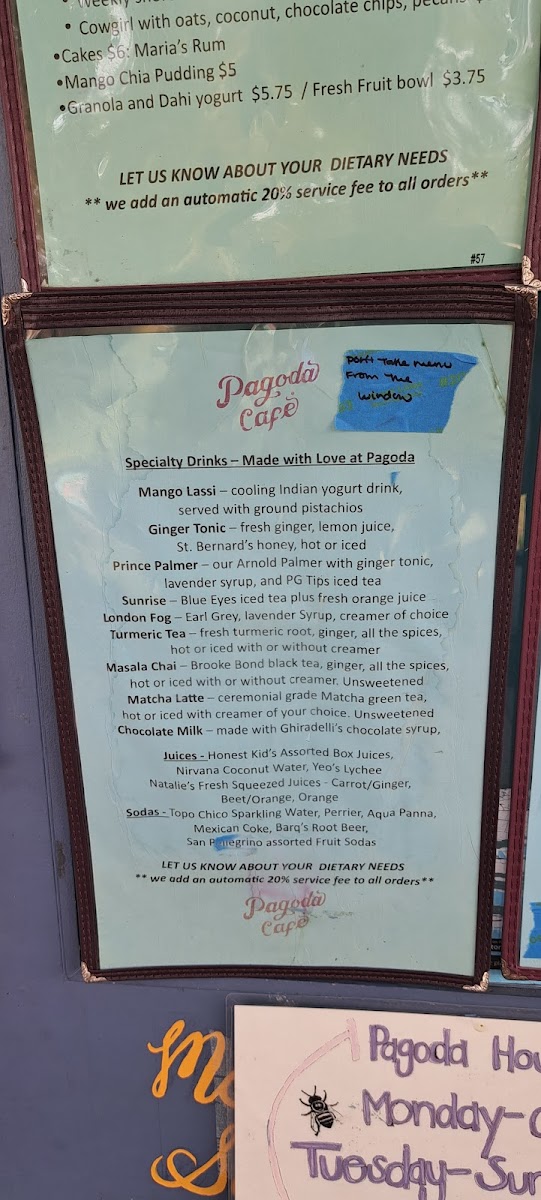 • Cowgirl with oats, coconut, chocolate chips,
•Cakes $6: Maria's Rum
•Mango Chia Pudding $5
•Granola and Dahi yogurt $5.75 / Fresh Fruit bowl $3.75
LET US KNOW ABOUT YOUR DIETARY NEEDS
** we add an automatic 20% service fee to all orders**
#57
Pagoda
Café
Don't Take menu
From The
window
Specialty Drinks – Made with Love at Pagoda
Mango Lassi – cooling Indian yogurt drink,
served with ground pistachios
Ginger Tonic – fresh ginger, lemon juice,
St. Bernard's honey, hot or iced
Prince Palmer – our Arnold Palmer with ginger tonic,
lavender syrup, and PG Tips iced tea
Sunrise – Blue Eyes iced tea plus fresh orange juice
London Fog – Earl Grey, lavender Syrup, creamer of choice
Turmeric Tea – fresh turmeric root, ginger, all the spices,
hot or iced with or without creamer
Masala Chai – Brooke Bond black tea, ginger, all the spices,
hot or iced with or without creamer. Unsweetened
Matcha Latte – ceremonial grade Matcha green tea,
hot or iced with creamer of your choice. Unsweetened
Chocolate Milk – made with Ghiradelli's chocolate syrup,
Juices - Honest Kid's Assorted Box Juices,
Nirvana Coconut Water, Yeo's Lychee
Natalie's Fresh Squeezed Juices - Carrot/Ginger,
Beet/Orange, Orange
Sodas - Topo Chico Sparkling Water, Perrier, Aqua Panna,
Mexican Coke, Barq's Root Beer,
San Pellegrino assorted Fruit Sodas
LET US KNOW ABOUT YOUR DIETARY NEEDS
** we add an automatic 20% service fee to all orders**
Pagoda
Café
Pagoda
Monday-
Tuesday-